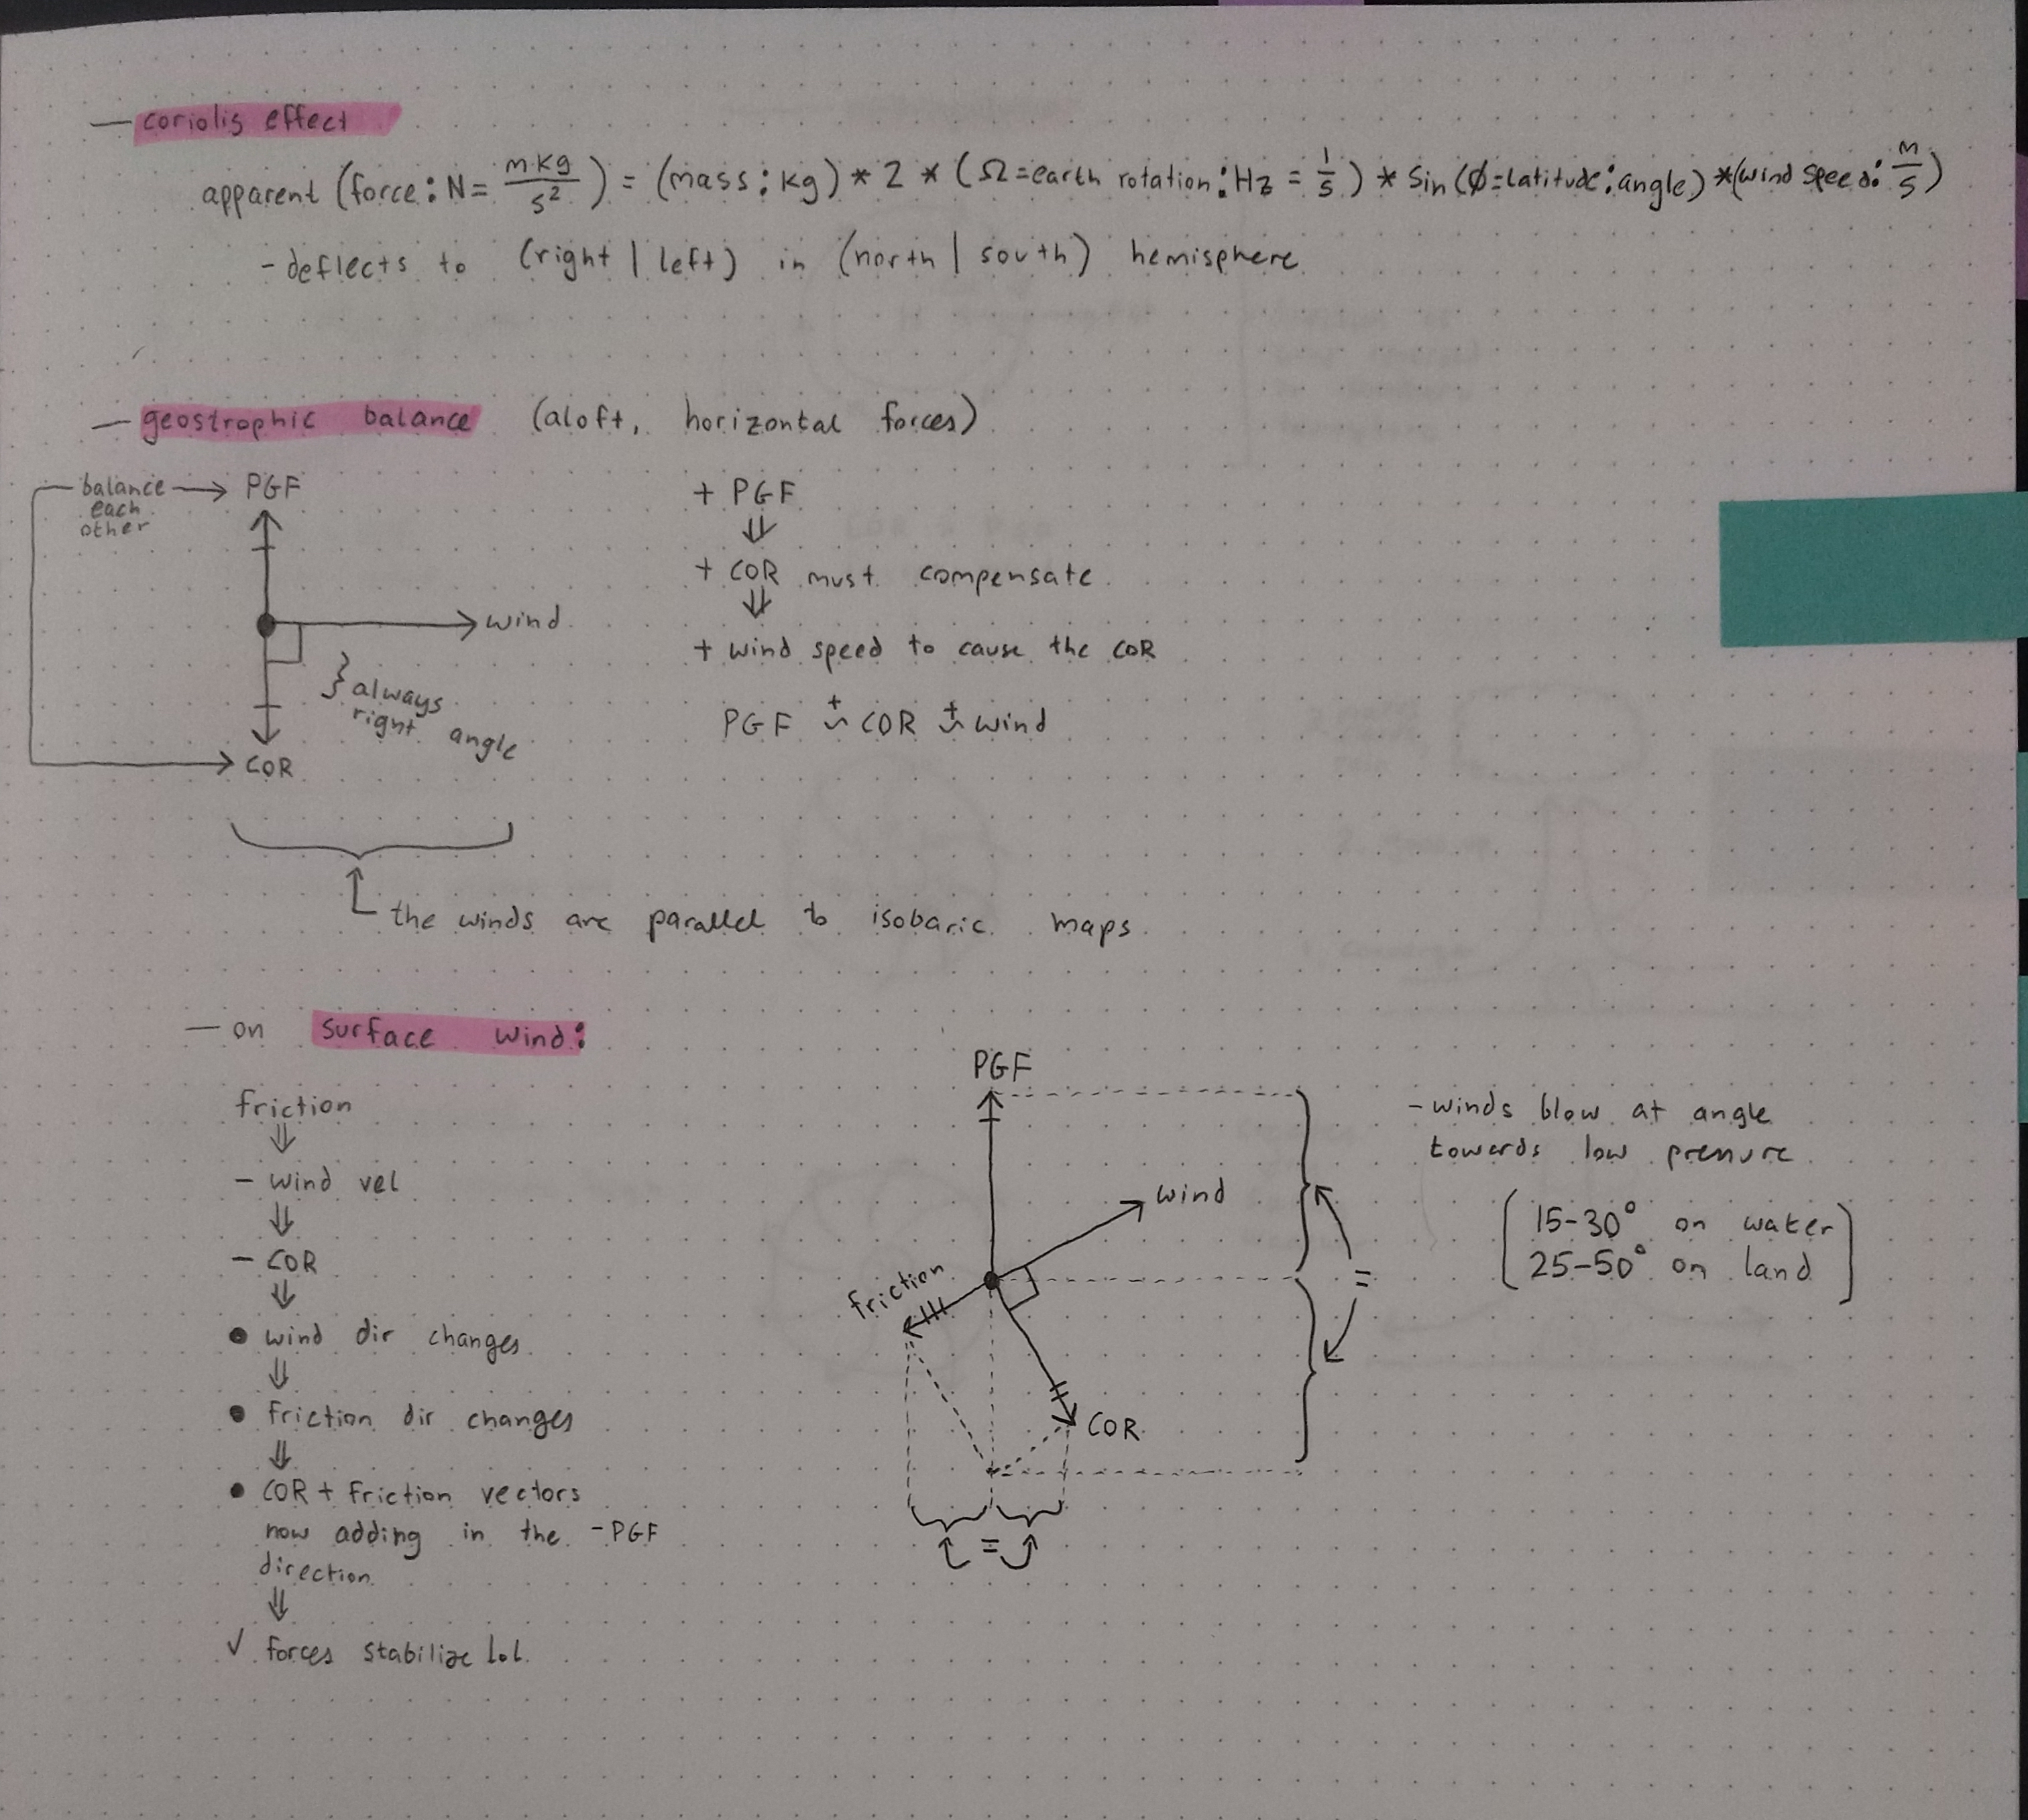 — coriolis effect
apparent (force: N = m kg / s²) = (mass: kg) * 2 * (Ω = earth rotation: Hz = 1/s) * sin(φ = latitude: angle) * (wind speed: m/s)
- deflects to (right | left) in (north | south) hemisphere
— geostrophic balance (aloft, horizontal forces)
balance → PGF
each
other
wind
} always
right angle
COR
+ PGF
⇓
+ COR must compensate
⇓
+ wind speed to cause the COR
PGF ~⁺ COR ~⁺ wind
the winds are parallel to isobaric maps
— on surface wind:
friction
⇓
- wind vel
⇓
- COR
⇓
• wind dir changes
⇓
• friction dir changes
⇓
• COR + friction vectors
now adding in the -PGF
direction
⇓
✓ forces stabilize lol
PGF
wind
friction
COR
=
=
- winds blow at angle
towards low pressure
15-30° on water
25-50° on land